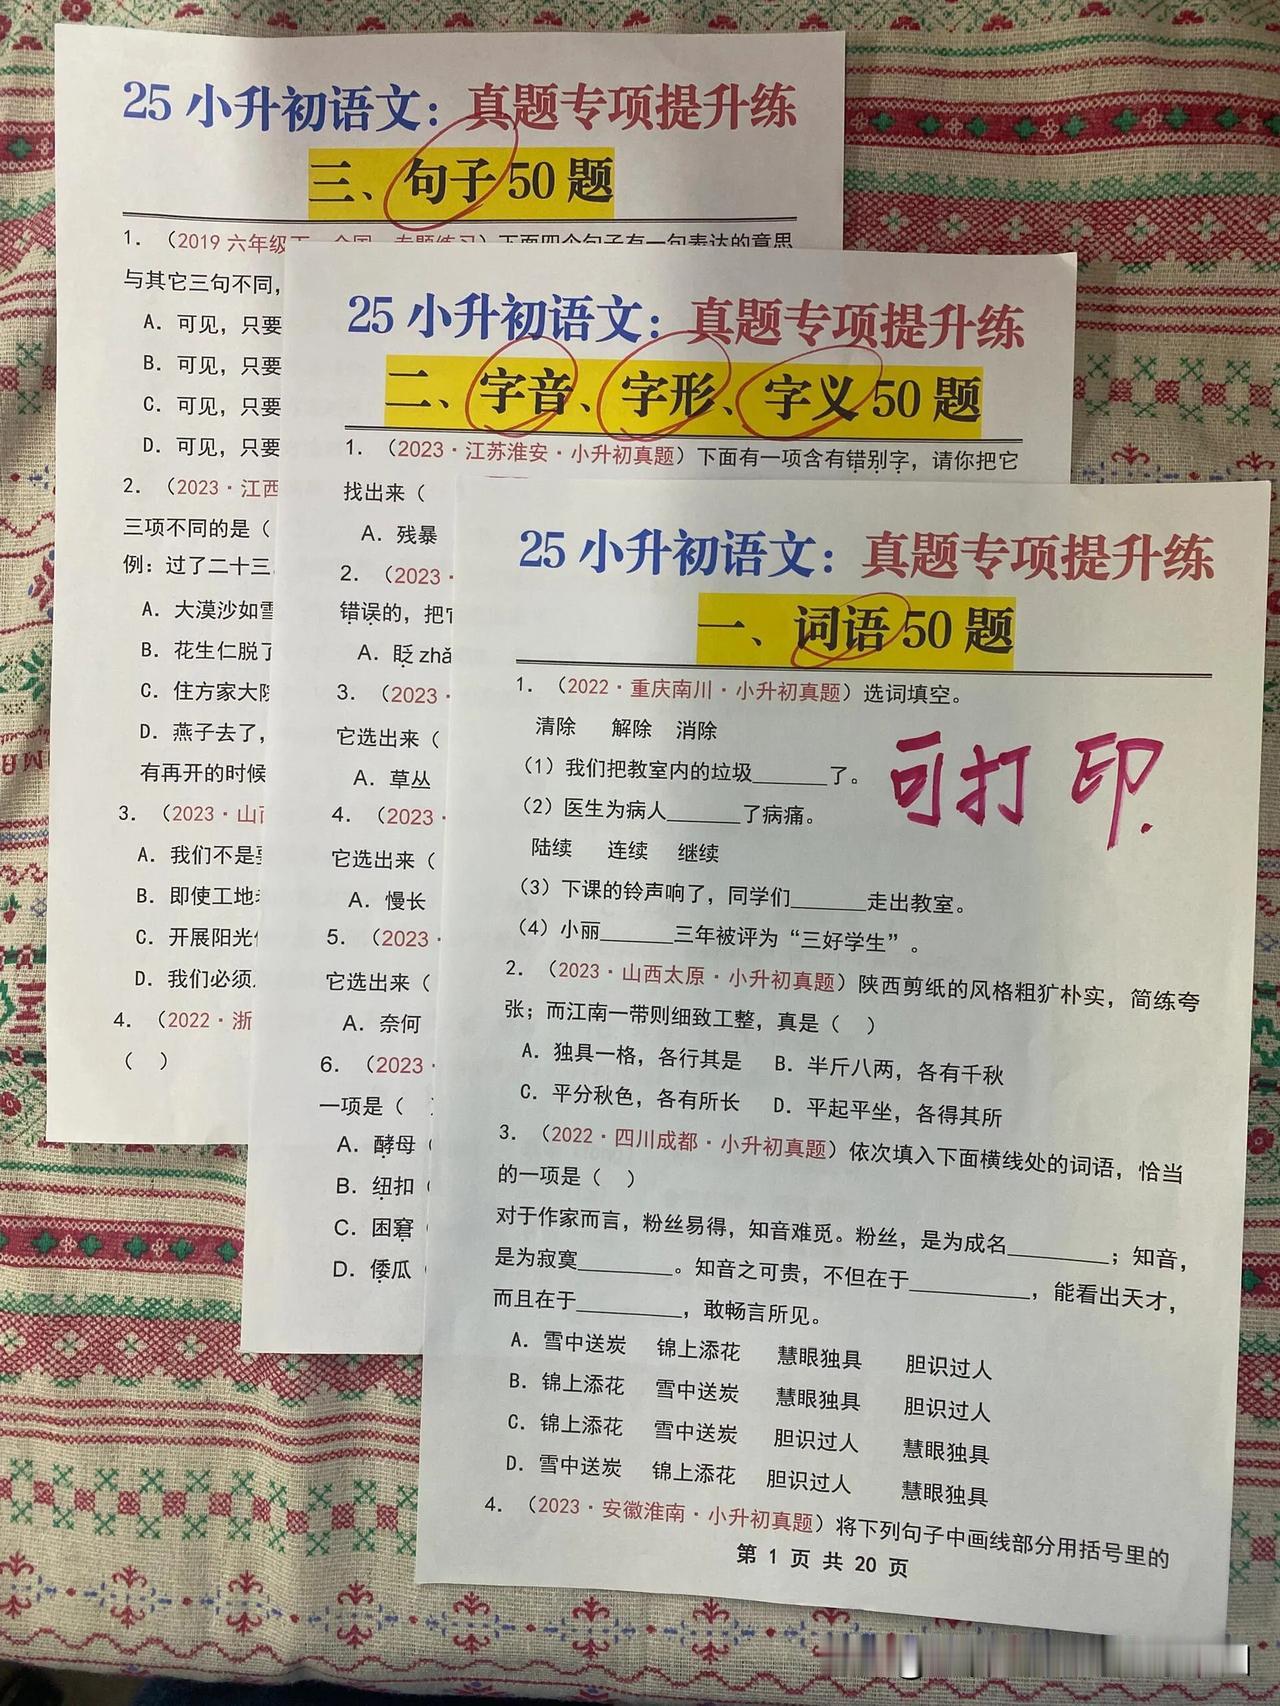 25 小升初语文：真题专项提升练
三、句子 50 题
1. （2019 六年级下·全国·专题练习）下面四个句子有一句表达的意思
与其它三句不同，
A. 可见，只要
B. 可见，只要
C. 可见，只要
D. 可见，只要
2. （2023·江西
三项不同的是（
例：过了二十三
A. 大漠沙如雪
B. 花生仁脱了
C. 住方家大院
D. 燕子去了，
有再开的时候
3. （2023·山西
A. 我们不是要
B. 即使工地
C. 开展阳光
D. 我们必须
4. （2022·浙
（ ）
25 小升初语文：真题专项提升练
二、字音、字形、字义 50 题
1. （2023·江苏淮安·小升初真题）下面有一项含有错别字，请你把它
找出来（
A. 残暴
2. （2023·
错误的，把它
A. 眨 zhǎ
3. （2023·
它选出来（
A. 草丛
4. （2023·
它选出来（
A. 慢长
5. （2023·
它选出来（
A. 奈何
6. （2023·
一项是（ ）
A. 酵母（
B. 纽扣（
C. 困窘（
D. 倭瓜（
25 小升初语文：真题专项提升练
一、词语 50 题
1. （2022·重庆南川·小升初真题）选词填空。
清除 解除 消除
（1）我们把教室内的垃圾______了。
（2）医生为病人______了病痛。
可打印.
陆续 连续 继续
（3）下课的铃声响了，同学们______走出教室。
（4）小丽______三年被评为“三好学生”。
2. （2023·山西太原·小升初真题）陕西剪纸的风格粗犷朴实，简练夸
张；而江南一带则细致工整，真是（ ）
A. 独具一格，各行其是 B. 半斤八两，各有千秋
C. 平分秋色，各有所长 D. 平起平坐，各得其所
3. （2022·四川成都·小升初真题）依次填入下面横线处的词语，恰当
的一项是（ ）
对于作家而言，粉丝易得，知音难觅。粉丝，是为成名________；知音，
是为寂寞________。知音之可贵，不但在于__________，能看出天才，
而且在于________，敢畅言所见。
A. 雪中送炭 锦上添花 慧眼独具 胆识过人
B. 锦上添花 雪中送炭 慧眼独具 胆识过人
C. 锦上添花 雪中送炭 胆识过人 慧眼独具
D. 雪中送炭 锦上添花 胆识过人 慧眼独具
4. （2023·安徽淮南·小升初真题）将下列句子中画线部分用括号里的
第 1 页 共 20 页